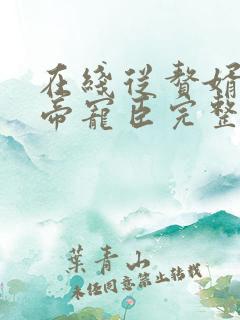 在线从赘婿
帝宠臣完整
葉青山
未经同意禁止转载